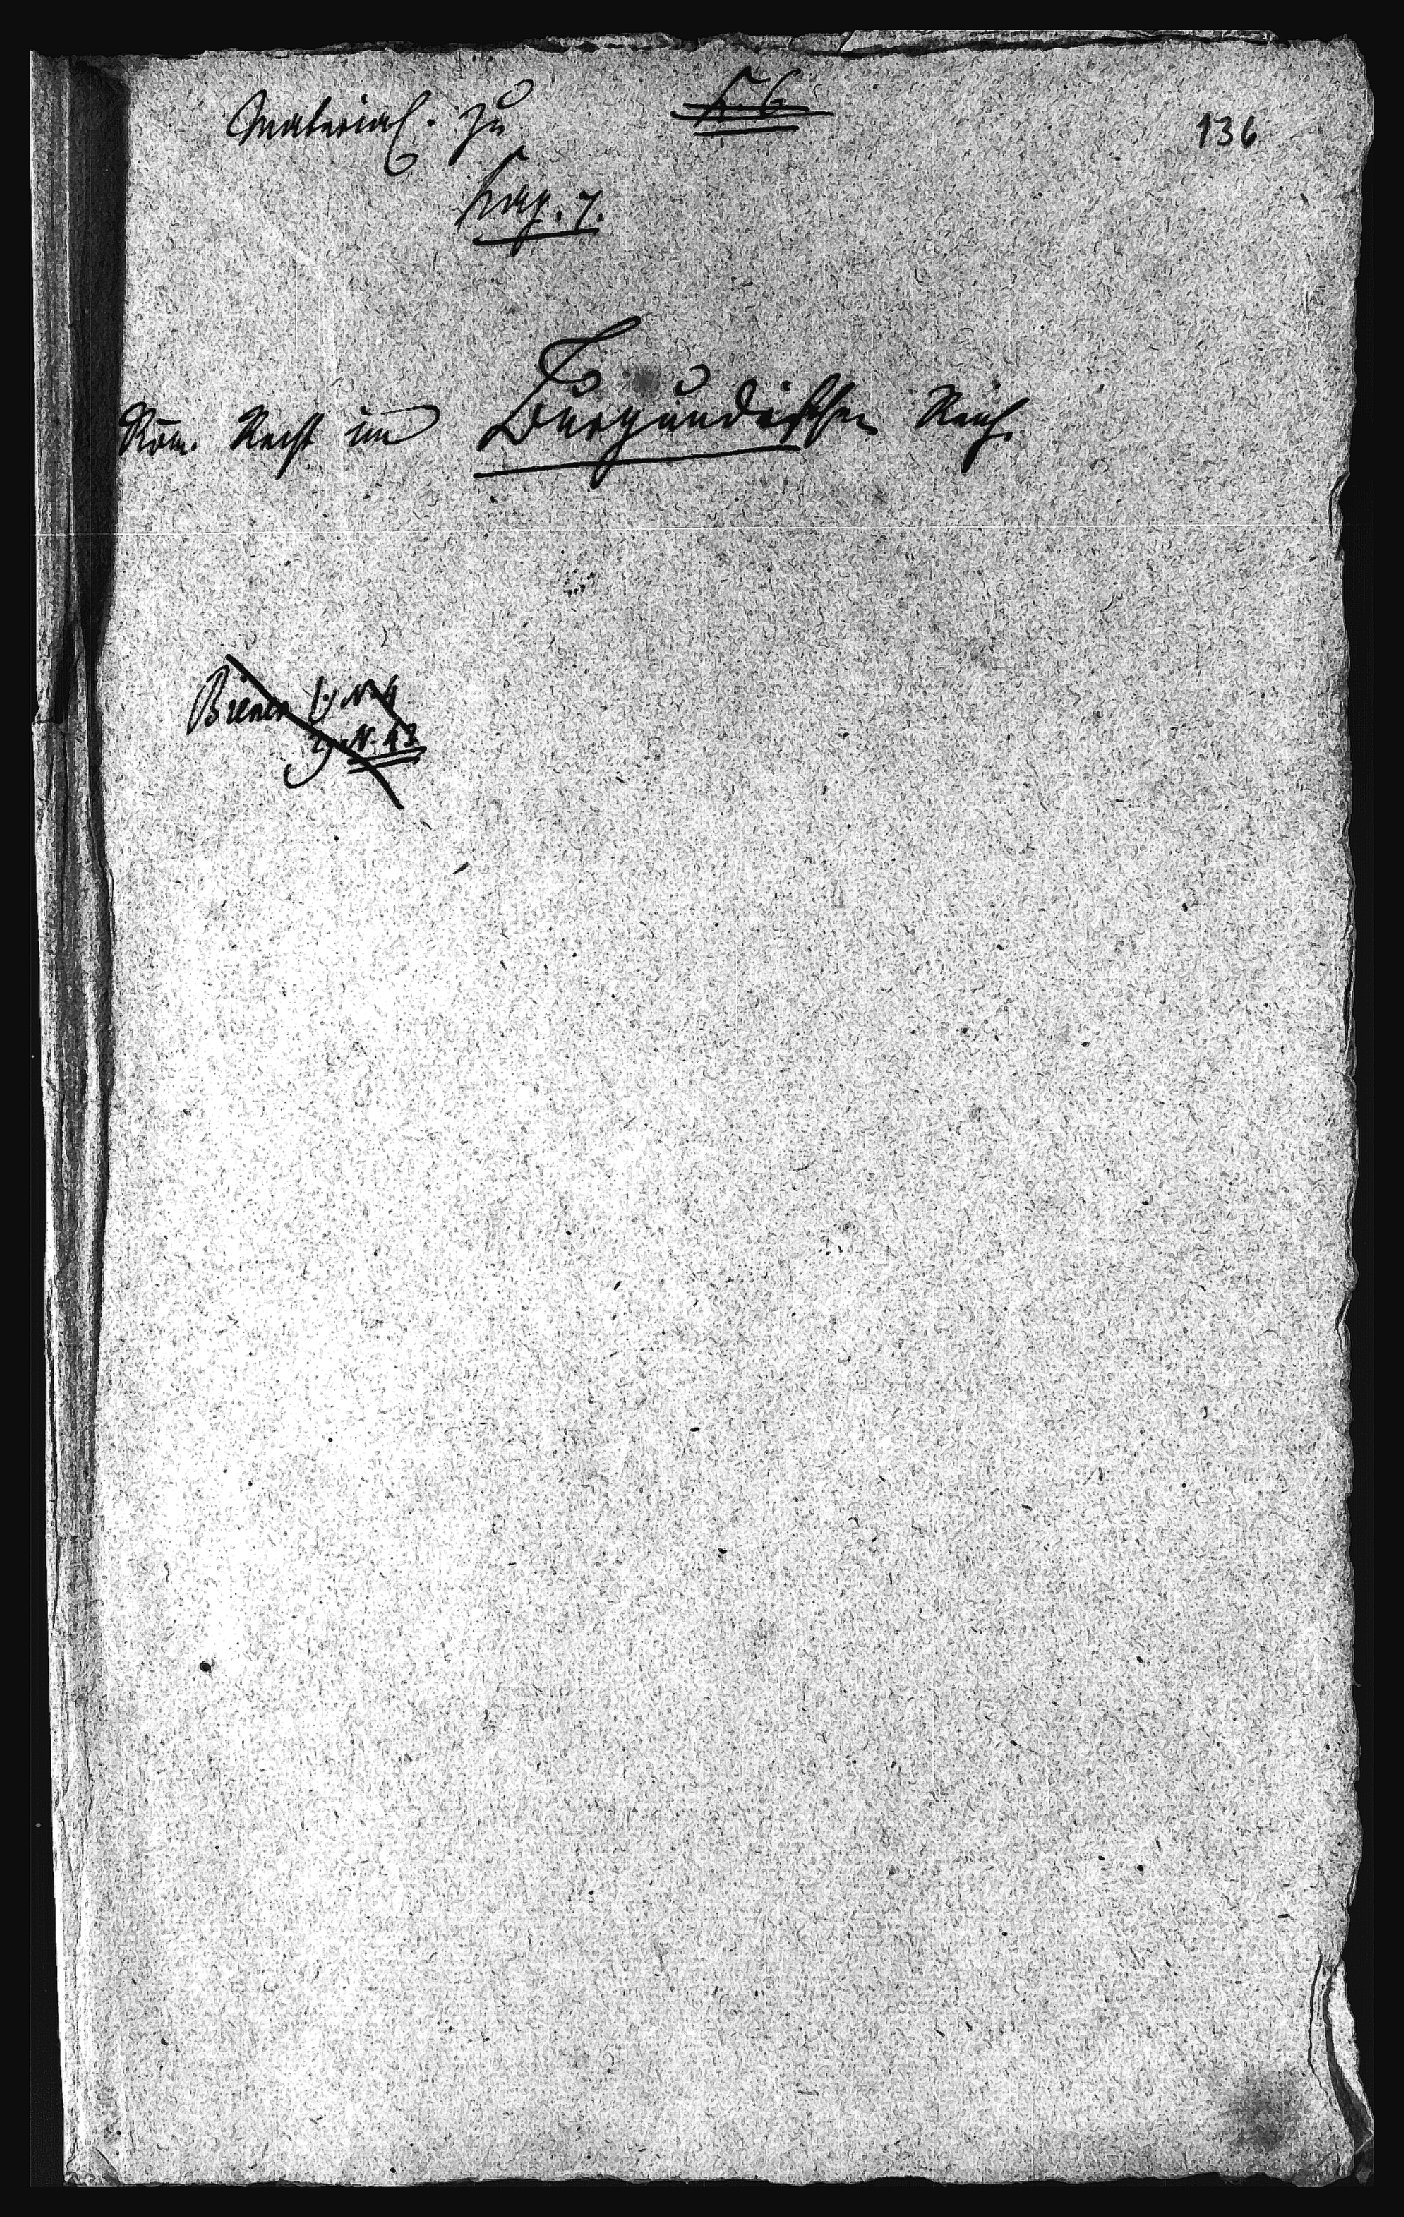 Material. zu
Kap. 7.
136
Röm. Recht im Burgundischen Reich.
Biener 1) N. 4
2) N. 43